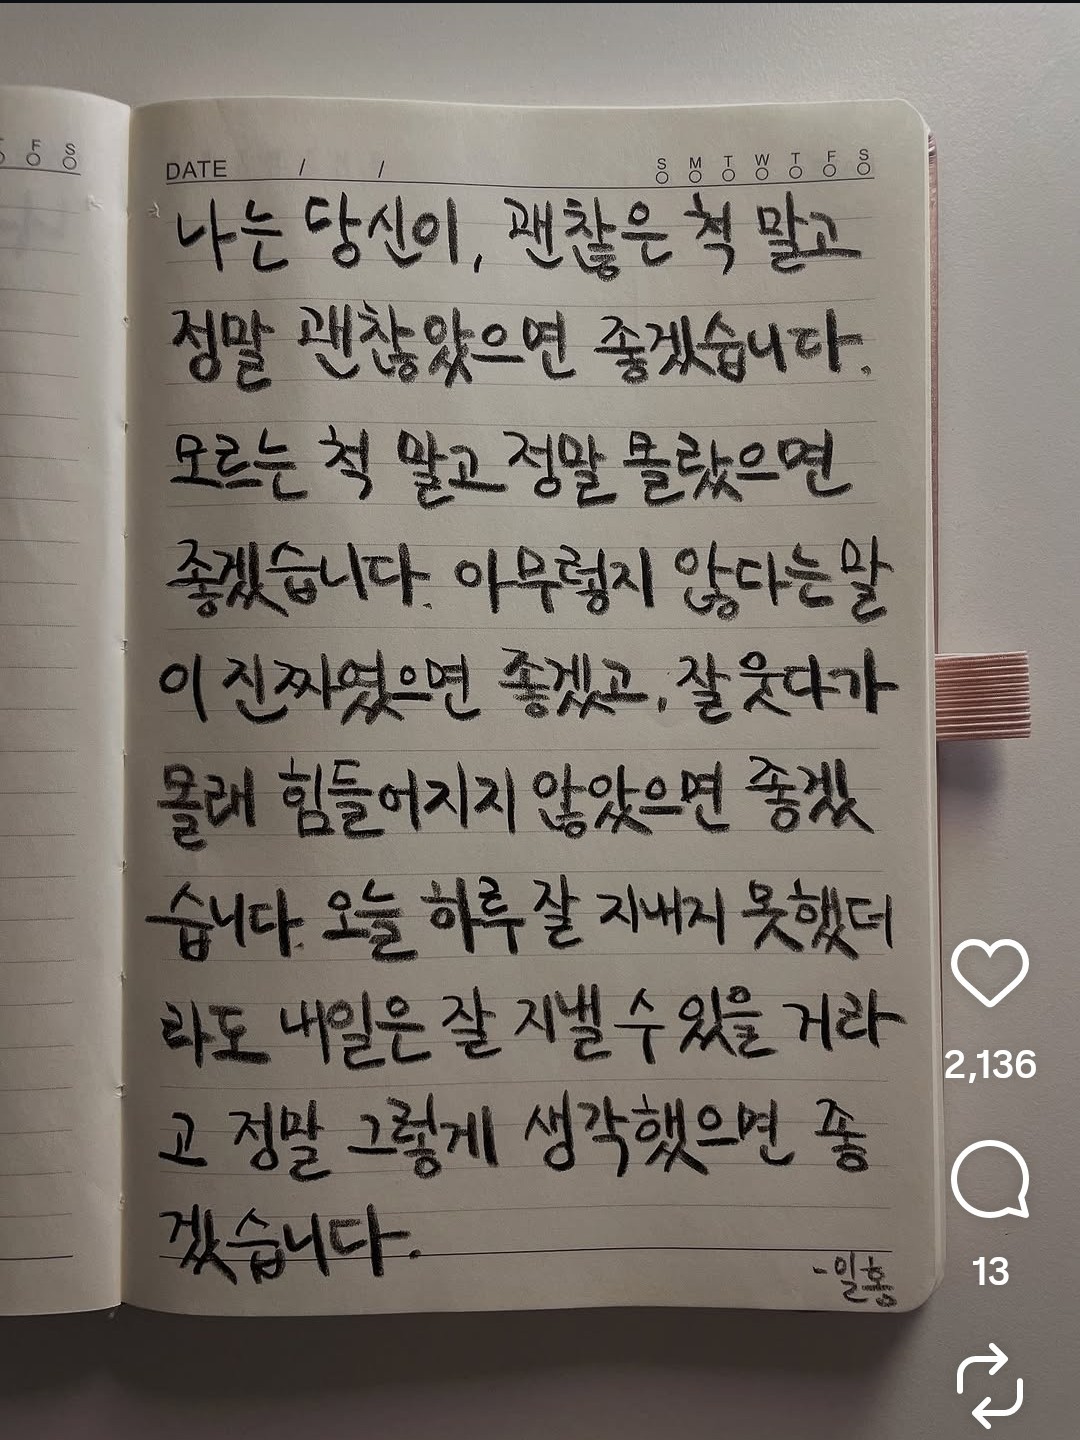 F S
DATE / / S M T W T F S
나는 당신이, 괜찮은 척 말고
정말 괜찮았으면 좋겠습니다.
모르는 척 말고 정말 몰랐으면
좋겠습니다. 아무렇지 않다는 말
이 진짜였으면 좋겠고, 잘 웃다가
몰래 힘들어지지 않았으면 좋겠
습니다. 오늘 하루 잘 지내지 못했더
라도 내일은 잘 지낼 수 있을 거라
고 정말 그렇게 생각했으면 좋
겠습니다.
-일홍
2,136
13